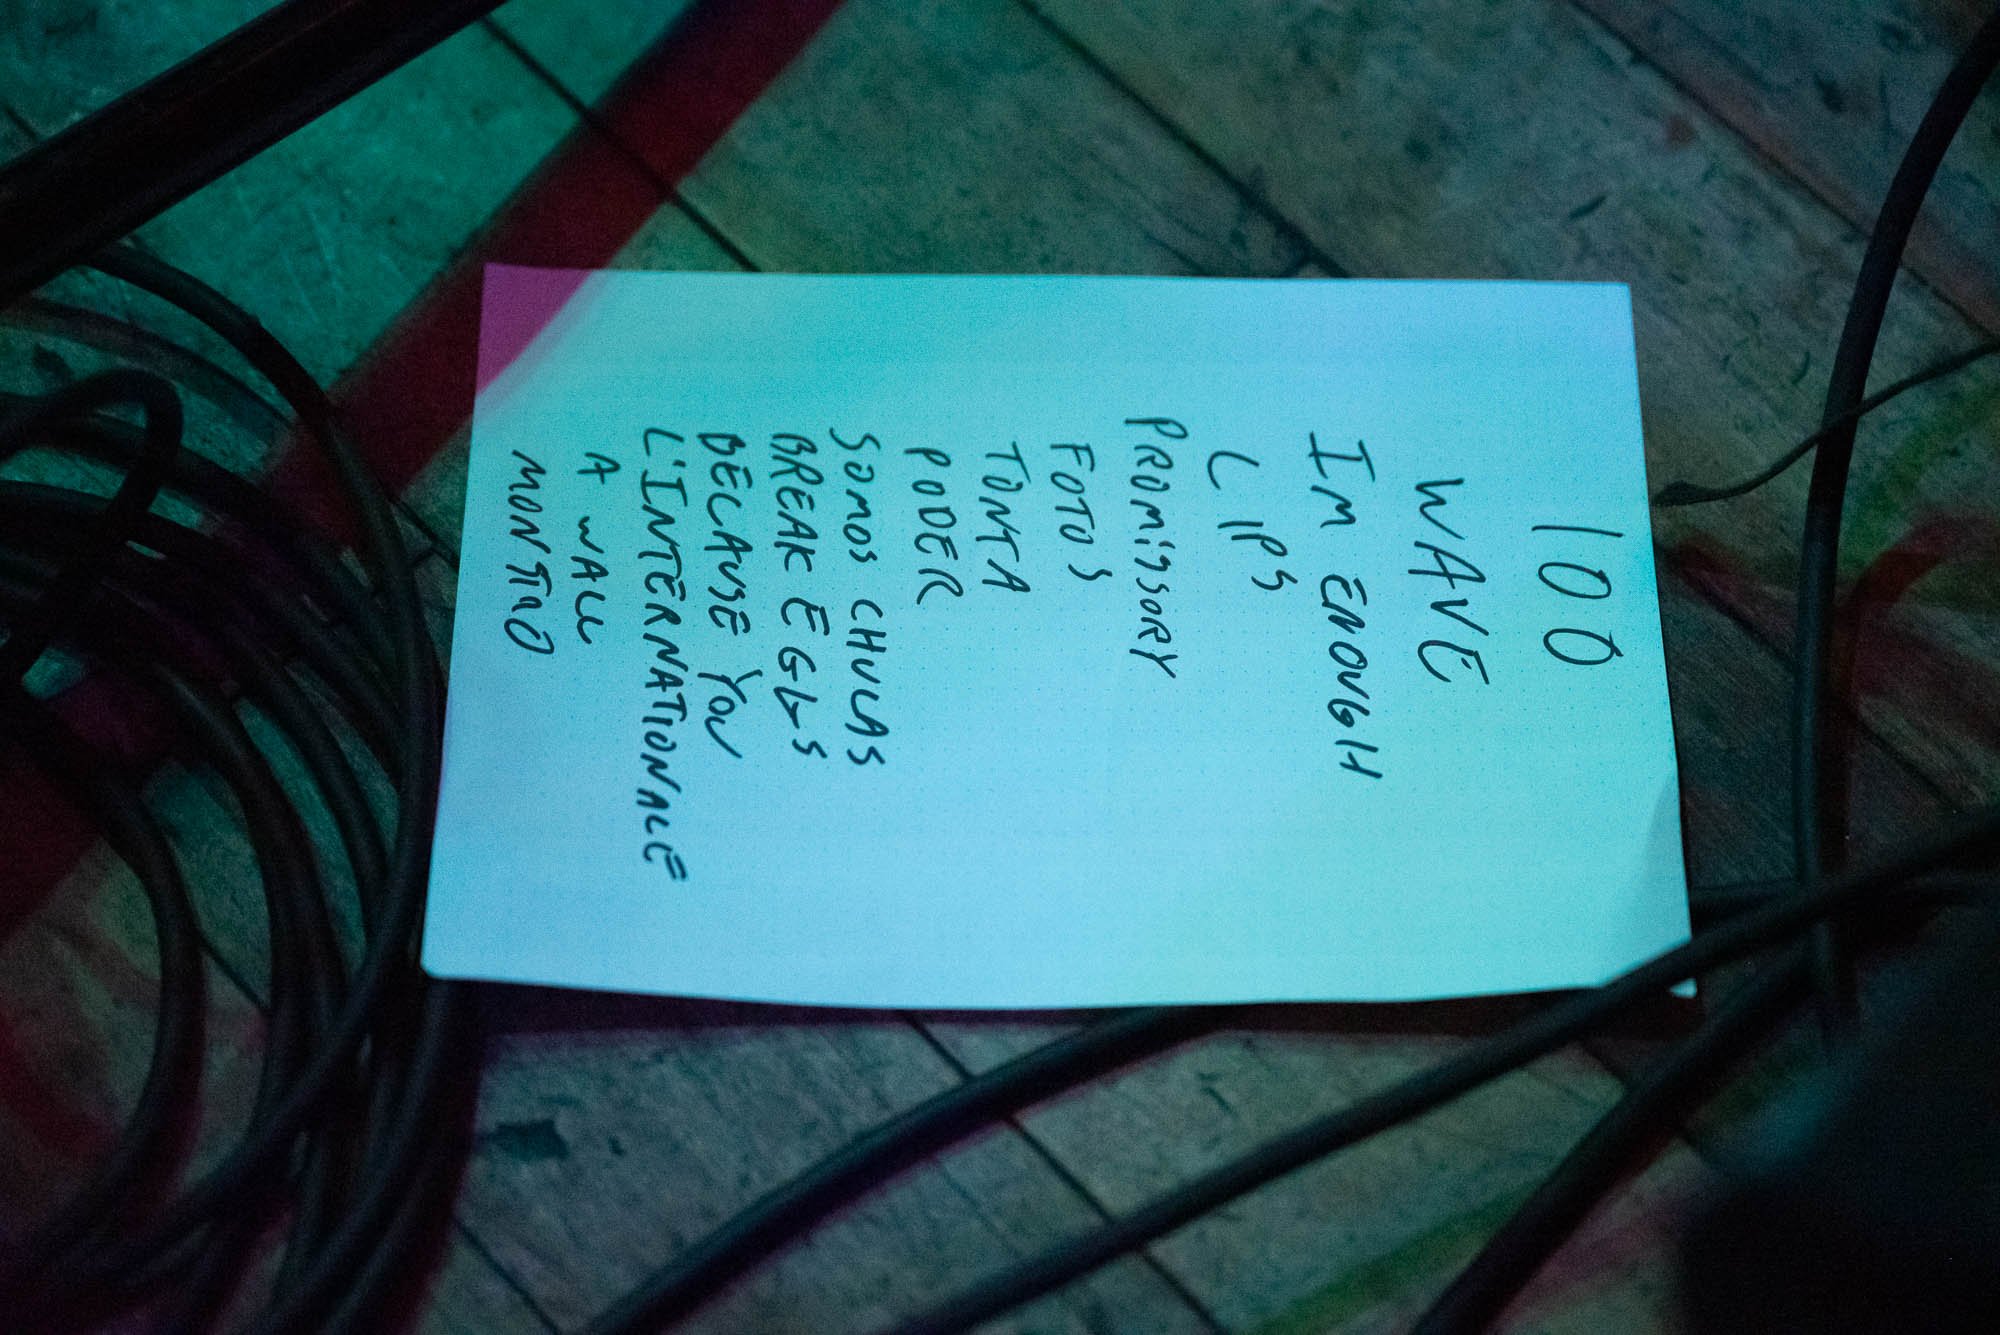 100
WAVE
IM ENOUGH
LIPS
PROMISSORY
FOTOS
TONTA
PODER
SOMOS CHULAS
BREAK EGGS
BECAUSE YOU
L'INTERNATIONALE
A WALL